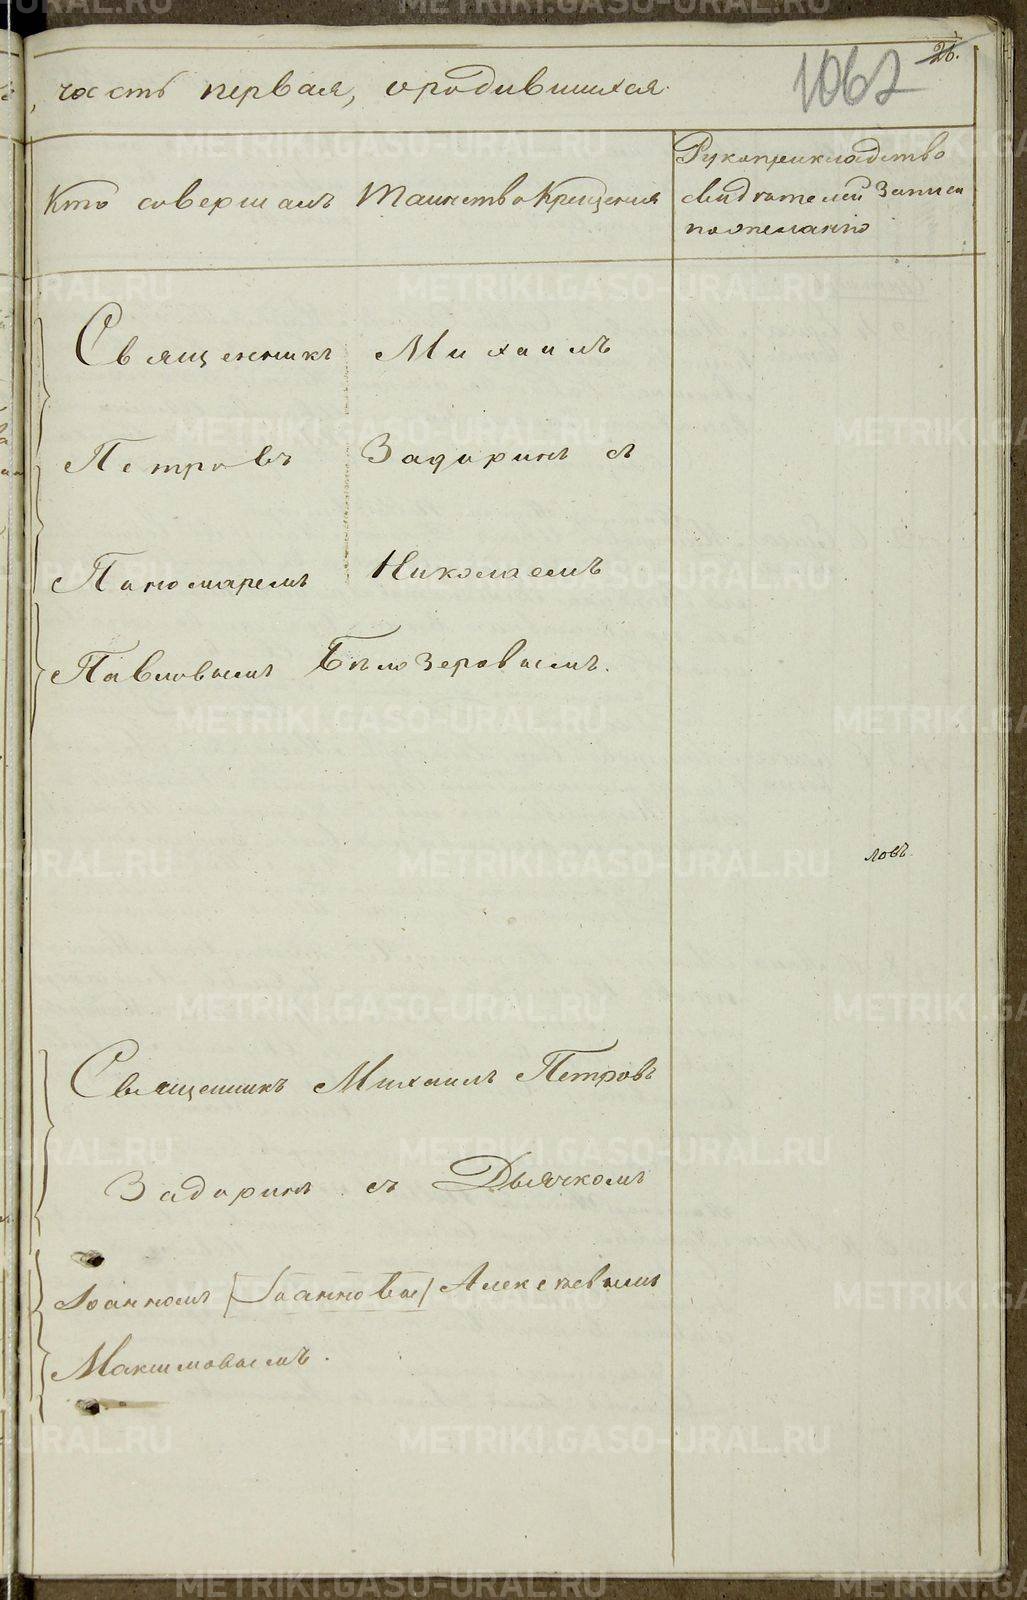 26.
1062
, часть первая, о родившихся.
Кто совершалъ Таинство Крещенія
Рукоприкладство
свидѣтелей записи
по желанію
Священникъ Михаилъ
Петровъ Задоринъ съ
Пономаремъ Николаемъ
Павловымъ Бѣлозеровымъ.
ловъ.
Священникъ Михаилъ Петровъ
Задоринъ съ Дьячкомъ
Іоанномъ (Іоанновы) Алексѣевымъ
Максимовымъ.
METRIKI.GASO-URAL.RU